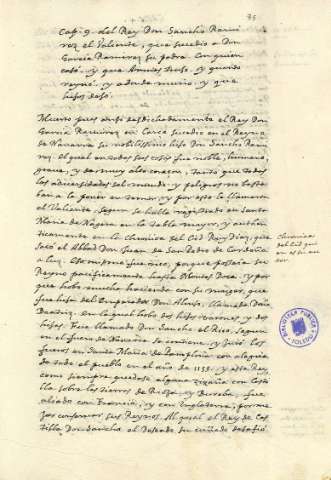 95
Cap. 9. del Rey Don Sancho Rami
rez el Valiente, que sucedio a Don
Garcia Ramirez su padre. Con quien
casó. y que Armas truxo. y quando
reynó. y adonde murio. y que
hijos dexó.
Muerto pues ansi desdichadamente el Rey Don
Garcia Ramirez en Lorca sucedio en el Reyno
de Navarra su nobilissimo hijo Don Sancho Rami
rez. el qual en todas sus cosas fue noble, humano,
grave, y de muy alto coraçon, tanto que todas
las adversidades del mundo, y peligros no basta
ban a le poner en temor, y por esto le llamaron
el Valiente, segun se halla registrado en Santa
Maria de Nagera en la tabla mayor, y autén
ticamente en la Chronica del Cid Ruy Diaz, que
sacó el Abbad Don Juan de San Pedro de Cardeña
a luz.
Chronica
del Cid
Reyno pacificamente hasta Montes Doca. y por
que hubo mucha hacienda con su muger, que
fue hija del Emperador Don Alonso, llamada Doña
Beatriz. en la qual hobo dos hijos varones, y dos
hijas. Fue llamado Don Sancho el Rico, segun
en el fuero de Navarra se contiene, y juró los
fueros en Santa Maria de Pamplona con alegria
de todo el pueblo en el año de 1155. y este Rey
como siempre quedase alguna zizaña con Casti
lla sobre las tierras de Rioja, y Bureba, fue
aliado con Francia, y con Inglaterra, por me
jor conservar sus Reynos. Al qual el Rey de Cas
tilla Don Sancho el Deseado su cuñado desafió
BIBLIOTECA PUBLICA
TOLEDO